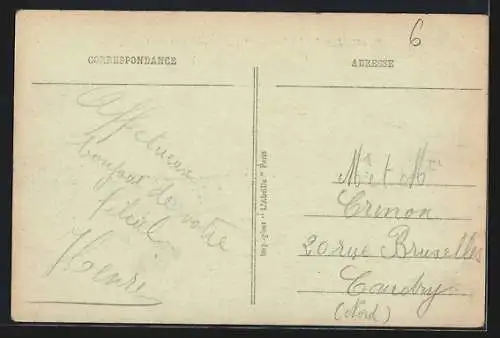 6
CORRESPONDANCE
ADRESSE
Affectueux
bonjour de votre
Henri
Imp.-phot "L'Abeille" Paris
Mr et Mme
Crinon
20 rue Bruxelles
Caudry
(Nord)